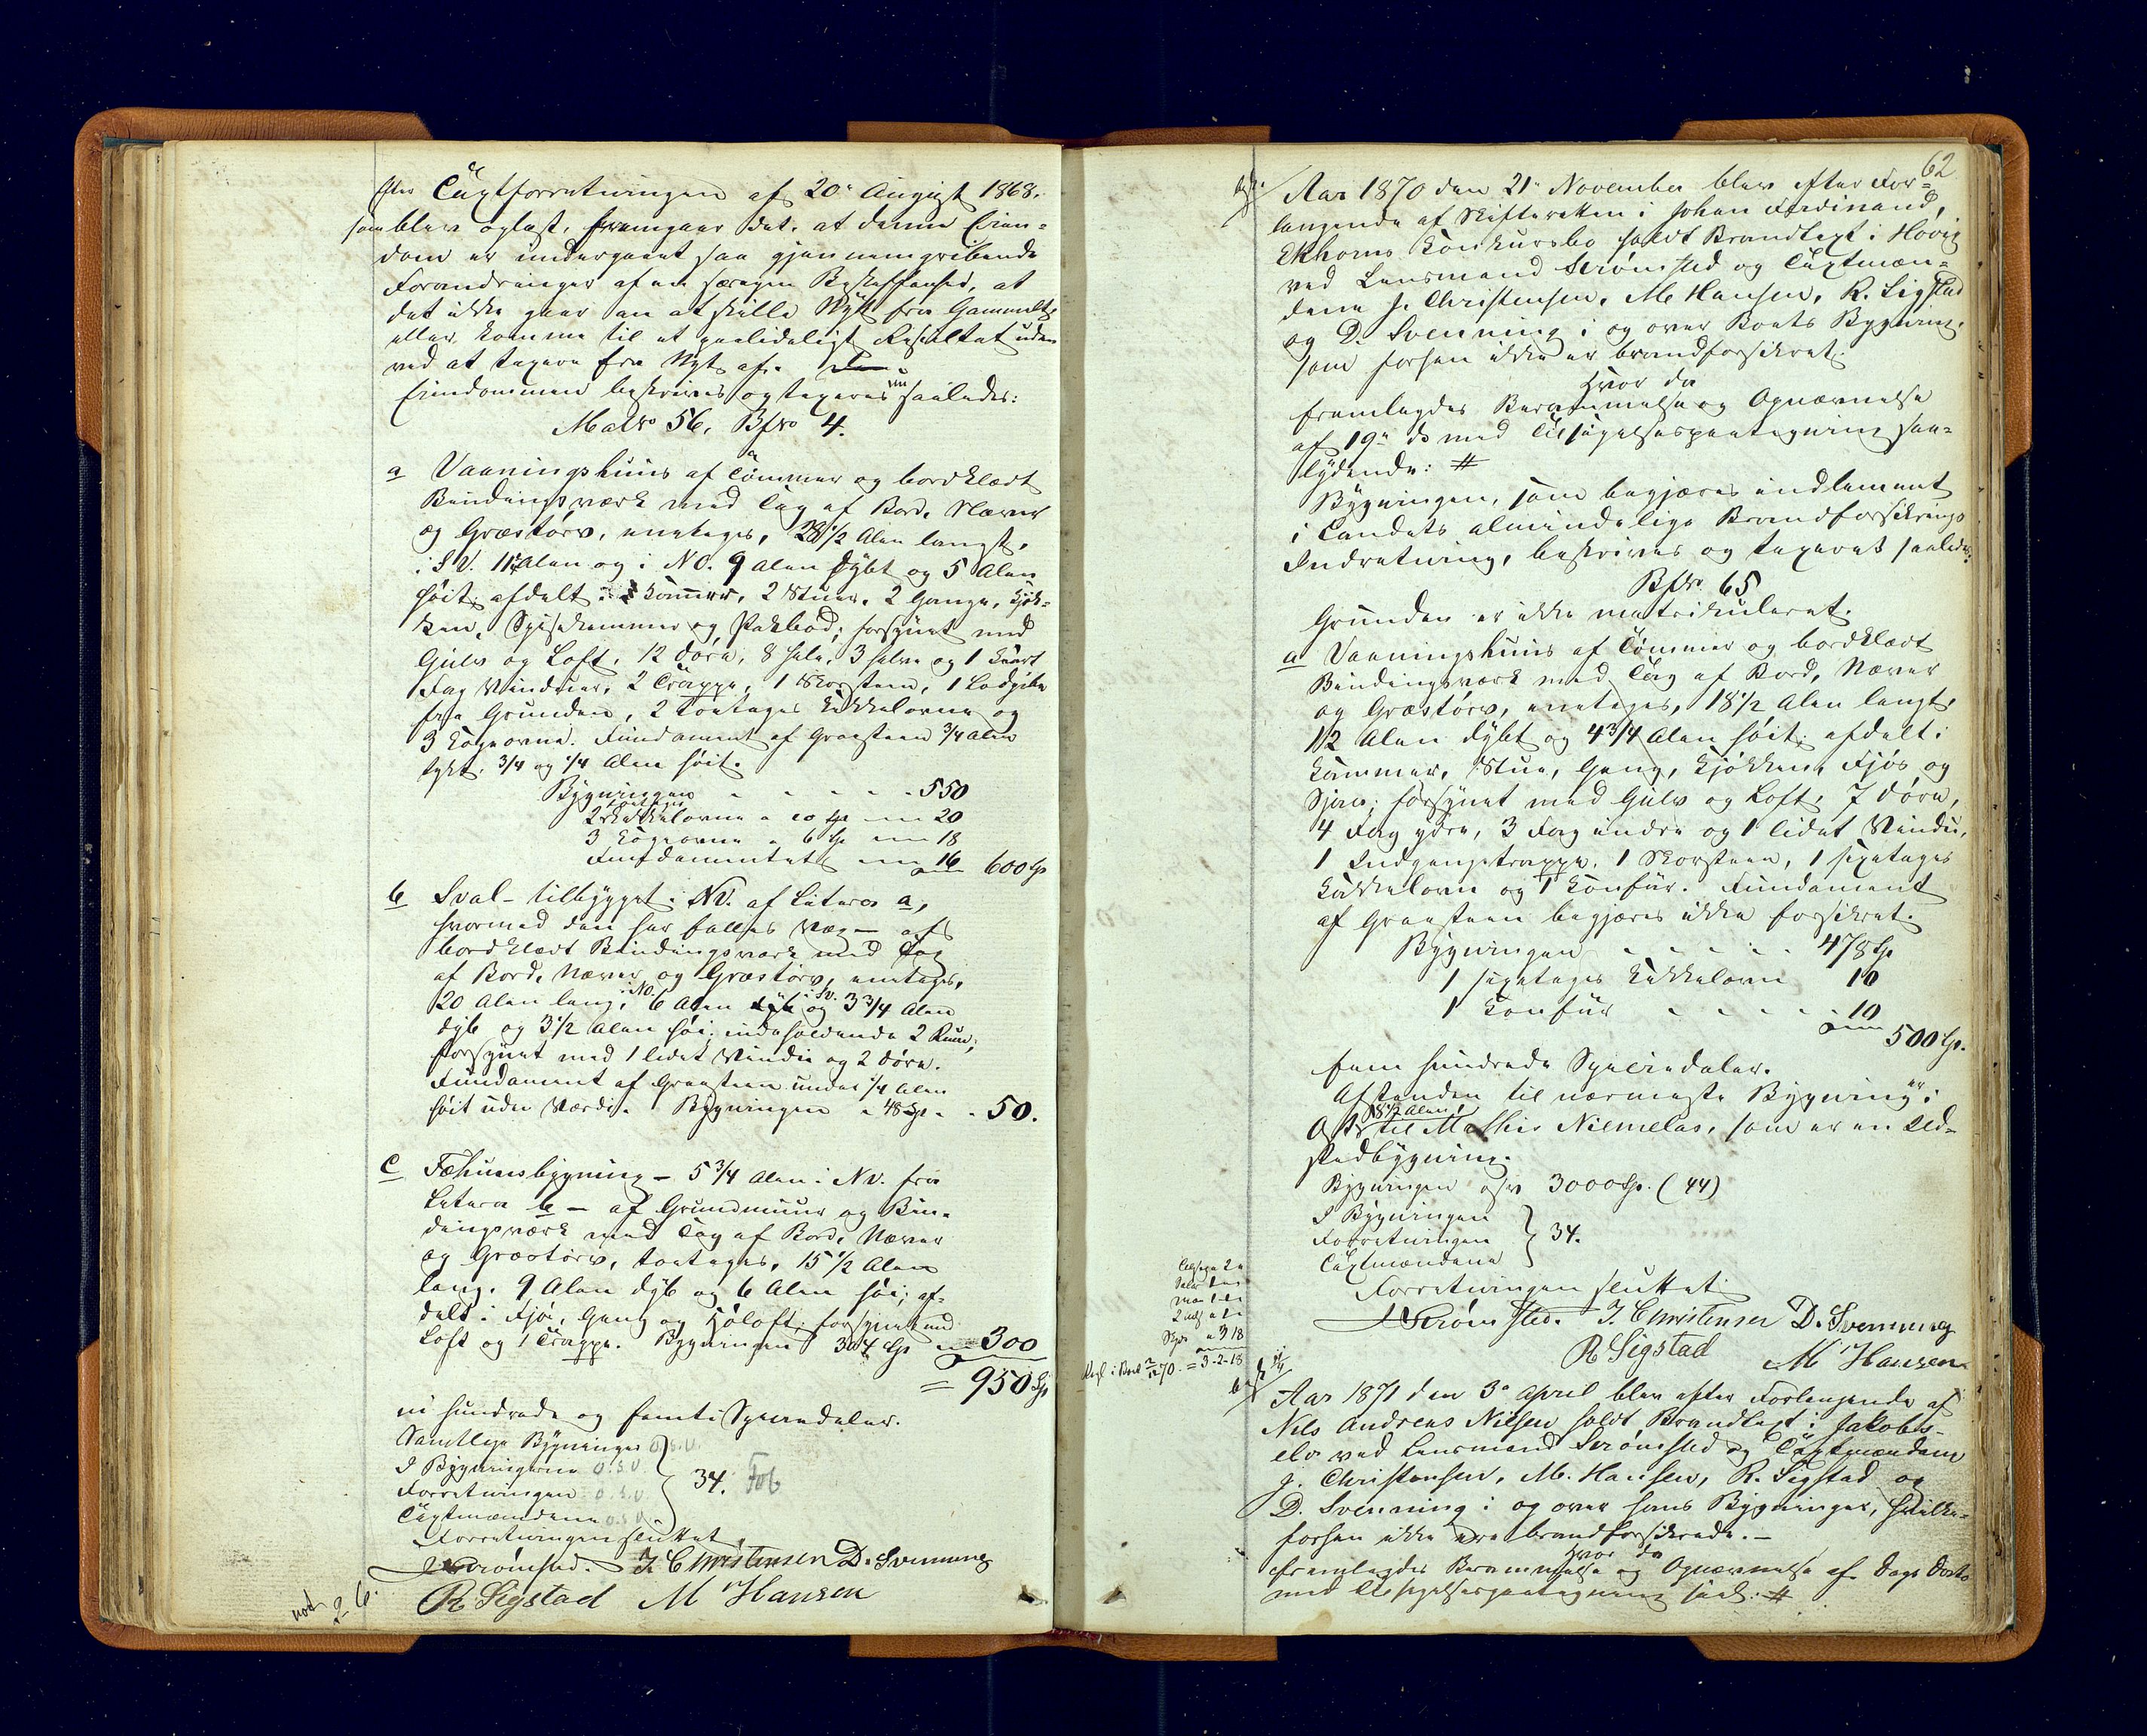 Efter Taxtforretningen af 20de August 1868.
som blev oplæst, fremgaaer det, at denne Eien-
dom er undergaaet saa gjennemgribende
Forandringer af en saregen Beskaffenhed, at
det ikke gaar an at skille Nyt fra Gammelt,
eller komme til et paalideligt Resultat uden
ved at taxere fra Nyt af.
Eiendommen beskrives og taxeres nu saaledes:
MatNo 56. BfNo 4.
a Vaaningshuus af Tømmer og bordklædt
Bindingsværk med Tag af Bord, Næver
og Græstorv, eenetages, 28 1/2 Alen langt,
i SV. 11 Alen og i NO. 9 Alen dybt og 5 Alen
høit; afdelt i Kammer, 2 Stuer, 2 Gange, Kjøk-
ken, Spisekammer og Pakbod; forsynet med
Gulv og Loft, 12 Døre, 8 hele, 3 halve og 1 kvart
Fag Vinduer, 2 Trappe, 1 Skorsteen, 1
fra Grunden, 2 toetages Kakkelovne og
3 Kogeovne. Fundament af Graasteen 3/4 Alen
tykt, 3/4 og 1/4 Alen høit.
Bygningen - - - - - 550
2 toetages Kakkelovne a 10 Sp 20
3 Kogeovne a 6 Sp 18
Fundamentet 16 600 Sp
b Sval - tilbygget i NV. af Litera a,
hvormed den har fælles Væg - af
bordklædt Bindingsværk med Tag
af Bord, Næver og Græstorv, eenetages,
20 Alen lang, i NO. 6 Alen og i SV. 3 3/4 Alen
dyb og 3 1/2 Alen høi; indeholdende 2 Rum;
forsynet med 1 lidet Vindue og 2 Døre.
Fundament af Graasteen under 1/4 Alen
høit uden Værdi. Bygningen - 48 Sp - - 50.
c Fæhuusbygning - 5 3/4 Alen i NV. fra
Litera b - af Grundmuur og Bin-
dingsværk med Tag af Bord, Næver
og Græstorv, toetages, 15 1/2 Alen
lang, 9 Alen dyb og 6 Alen høi; af-
delt i Fjøs, Gang og Høloft; forsynet med
Loft og 1 Trappe. Bygningen 304 Sp 300
= 950 Sp
ni hundrede og femti Speciedaler.
Samtlige Bygninger o.s.v.
I Bygningerne o.s.v.
Forretningen o.s.v. 34. Fol
Taxtmændene o.s.v.
Forretningen sluttet
Strömsted. J. Christensen D. Svenning
R Sigstad M Hansen
62
Aar 1870 den 21de November blev efter For-
langende af Skifteretten i Johan Ferdinand
Ekhorns Konkursbo holdt Brandtaxt i Hovig
ved Lensmand Strömsted og Taxtmæn-
dene J. Christensen, M. Hansen, R. Sigstad
og D. Svenning i og over Boets Bygning,
som forhen ikke er brandforsikret.
Hvor da
fremlagdes Berammelse og Opnævnelse
af 19de ds med Tilsigelsespaategning saa-
lydende: #
Bygningen, som begjæres indlemmet
i Landets almindelige Brandforsikrings
Indretning, beskrives og taxeres saaledes:
BfNo. 65
Grunden er ikke matrikuleret.
a Vaaningshuus af Tømmer og bordklædt
Bindingsværk med Tag af Bord, Næver
og Græstorv, eenetages, 18 1/2 Alen langt,
12 Alen dybt og 4 3/4 Alen høit; afdelt i
Kammer, Stue, Gang, Kjøkken, Fjøs og
forsynet med Gulv og Loft, 7 Døre,
4 Fag ydre, 3 Fag indre og 1 lidet Vindue,
1 Indgangstrappe, 1 Skorsteen, 1 sexetages
Kakkelovn og 1 Konfur. Fundament
af Graasteen begjæres ikke forsikret.
Bygningen - - - - - 478 Sp
1 sexetages Kakkelovn 10
1 Konfur - - - - - 10
500 Sp.
fem hundrede Speciedaler.
Afstanden til nærmeste Bygning er i
Ost 8 1/2 Alen til Mathis Niemelas, som er en Ild-
stedbygning.
Bygningen osv 3000 Sp. (44)
I Bygningen
Forretningen 34.
Taxtmændene
Forretningen sluttet
Strömsted. J. Christensen D. Svenning
R Sigstad M Hansen
Aar 1871 den 3de April blev efter Forlangende af
Nils Andreas Nilsen holdt Brandtaxt i Jakobs-
elv ved Lensmand Strömsted og Taxtmændene
J. Christensen, M. Hansen, R. Sigstad og
D. Svenning i og over hans Bygninger, hvilke
forhen ikke ere brandforsikrede. -
Hvor da
fremlagdes Berammelse og Opnævnelse af Dags Dato
med Tilsigelsespaategning saal: #